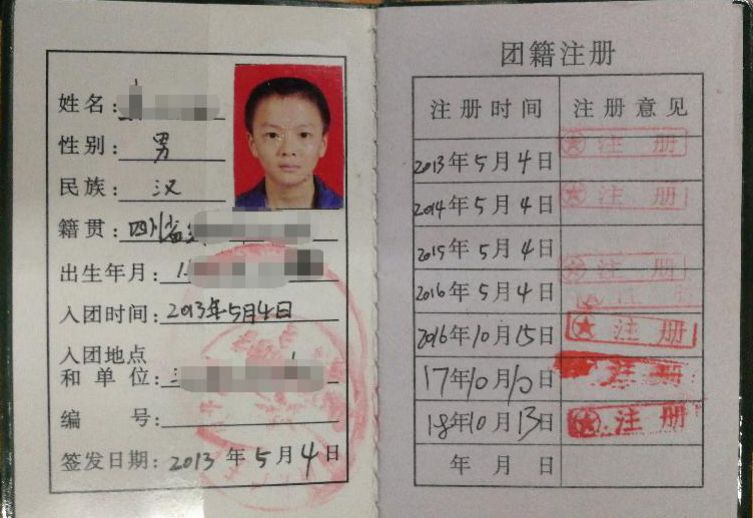 姓名:
性别: 男
民族: 汉
籍贯: 四川省
出生年月: 1
入团时间: 2013年5月4日
入团地点
和单位:
编号:
签发日期: 2013年5月4日
团籍注册
注册时间 注册意见
2013年5月4日 注册
2014年5月4日 注册
2015年5月4日
2016年5月4日 注册
2016年10月15日 注册
17年10月10日 注册
18年10月13日 注册
年月日